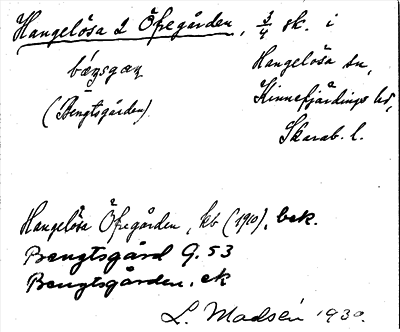 Hangelösa 2 Öfregården, 3/4 sk. i
Hangelösa sn,
(Bengtsgården)
Kinnefjärdings hd,
Skarab. l.
Hangelösa Öfregården, kb (1910), bek.
Bengtsgård G. 53
Bengtsgården, ek
L. Madsén 1930.